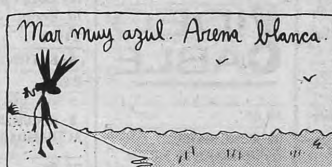 Mar muy azul. Arena blanca.